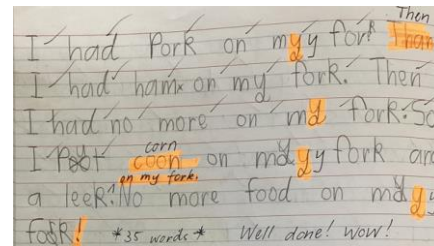 Then
I had Pork on my fork
I had ham on my fork. Then
I had no more on my fork. So
corn
I coon on my fork an
on my fork.
a leek. No more food on my
fork!
*35 words* Well done! Wow!